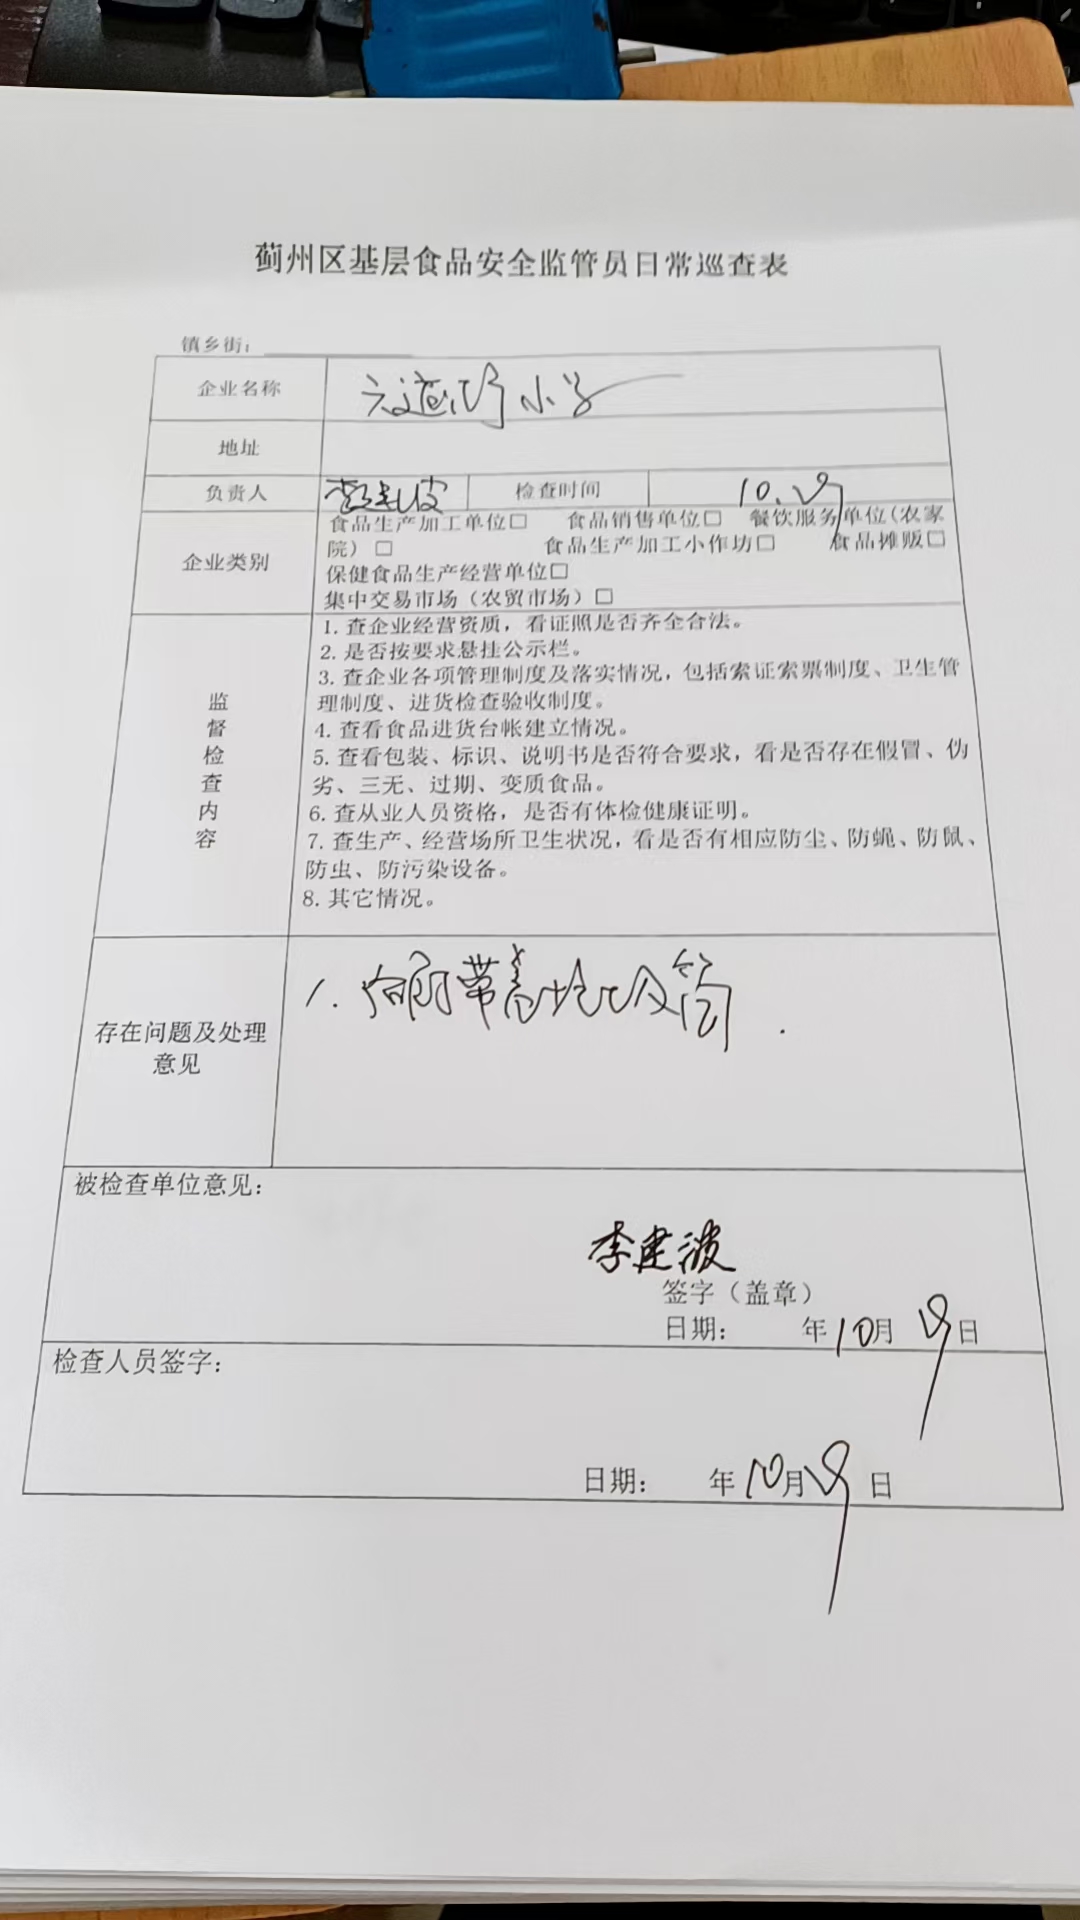 蓟州区基层食品安全监管员日常巡查表
镇乡街：
企业名称 六道街小学
地址
负责人 李建波 检查时间 10.19
企业类别
食品生产加工单位□ 食品销售单位□ 餐饮服务单位（农家
院）□ 食品生产加工小作坊□ 食品摊贩□
保健食品生产经营单位□
集中交易市场（农贸市场）□
监督检查内容
1. 查企业经营资质，看证照是否齐全合法。
2. 是否按要求悬挂公示栏。
3. 查企业各项管理制度及落实情况，包括索证索票制度、卫生管
理制度、进货检查验收制度。
4. 查看食品进货台帐建立情况。
5. 查看包装、标识、说明书是否符合要求，看是否存在假冒、伪
劣、三无、过期、变质食品。
6. 查从业人员资格，是否有体检健康证明。
7. 查生产、经营场所卫生状况，看是否有相应防尘、防蝇、防鼠、
防虫、防污染设备。
8. 其它情况。
存在问题及处理
意见
1. 带盖垃圾筒.
被检查单位意见：
李建波
签字（盖章）
日期： 年10月19日
检查人员签字：
日期： 年10月19日